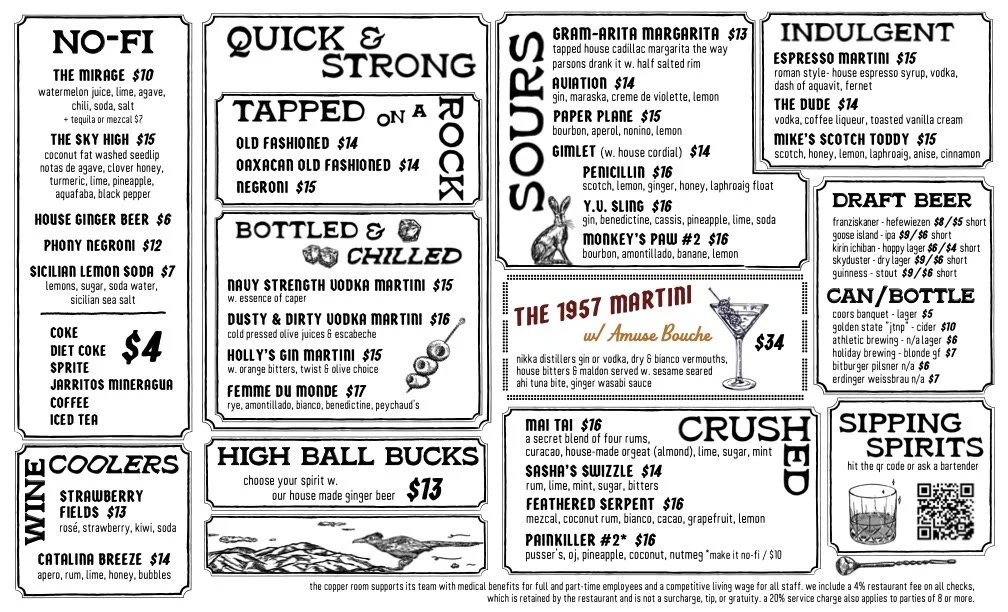 NO-FI
THE MIRAGE $10
watermelon juice, lime, agave,
chili, soda, salt
+ tequila or mezcal $7
THE SKY HIGH $15
coconut fat washed seedlip
notas de agave, clover honey,
turmeric, lime, pineapple,
aquafaba, black pepper
HOUSE GINGER BEER $6
PHONY NEGRONI $12
SICILIAN LEMON SODA $7
lemons, sugar, soda water,
sicilian sea salt
COKE
DIET COKE
SPRITE
JARRITOS MINERAGUA
COFFEE
ICED TEA
$4
WINE COOLERS
STRAWBERRY
FIELDS $13
rosé, strawberry, kiwi, soda
CATALINA BREEZE $14
apero, rum, lime, honey, bubbles
QUICK &
STRONG
TAPPED ON A ROCK
OLD FASHIONED $14
OAXACAN OLD FASHIONED $14
NEGRONI $15
BOTTLED &
CHILLED
NAVY STRENGTH VODKA MARTINI $15
w. essence of caper
DUSTY & DIRTY VODKA MARTINI $16
cold pressed olive juices & escabeche
HOLLY'S GIN MARTINI $15
w. orange bitters, twist & olive choice
FEMME DU MONDE $17
rye, amontillado, bianco, benedictine, peychaud's
HIGH BALL BUCKS
choose your spirit w.
our house made ginger beer $13
SOURS
GRAM-ARITA MARGARITA $13
tapped house cadillac margarita the way
parsons drank it w. half salted rim
AVIATION $14
gin, maraska, creme de violette, lemon
PAPER PLANE $15
bourbon, aperol, nonino, lemon
GIMLET (w. house cordial) $14
PENICILLIN $16
scotch, lemon, ginger, honey, laphroaig float
Y.U. SLING $16
gin, benedictine, cassis, pineapple, lime, soda
MONKEY'S PAW #2 $16
bourbon, amontillado, banane, lemon
THE 1957 MARTINI
w/ Amuse Bouche
$34
nikka distillers gin or vodka, dry & bianco vermouths,
house bitters & maldon served w. sesame seared
ahi tuna bite, ginger wasabi sauce
CRUSHED
MAI TAI $16
a secret blend of four rums,
curacao, house-made orgeat (almond), lime, sugar, mint
SASHA'S SWIZZLE $14
rum, lime, mint, sugar, bitters
FEATHERED SERPENT $16
mezcal, coconut rum, bianco, cacao, grapefruit, lemon
PAINKILLER #2* $16
pusser's, oj, pineapple, coconut, nutmeg *make it no-fi / $10
INDULGENT
ESPRESSO MARTINI $15
roman style- house espresso syrup, vodka,
dash of aquavit, fernet
THE DUDE $14
vodka, coffee liqueur, toasted vanilla cream
MIKE'S SCOTCH TODDY $15
scotch, honey, lemon, laphroaig, anise, cinnamon
DRAFT BEER
franziskaner - hefewiezen $8/$5 short
goose island - ipa $9/$6 short
kirin ichiban - hoppy lager $6/$4 short
skyduster - dry lager $9/$6 short
guinness - stout $9/$6 short
CAN/BOTTLE
coors banquet - lager $5
golden state "jtnp" - cider $10
athletic brewing - n/a lager $6
holiday brewing - blonde gf $7
bitburger pilsner n/a $6
erdinger weissbrau n/a $7
SIPPING
SPIRITS
hit the qr code or ask a bartender
the copper room supports its team with medical benefits for full and part-time employees and a competitive living wage for all staff. we include a 4% restaurant fee on all checks,
which is retained by the restaurant and is not a surcharge, tip, or gratuity. a 20% service charge also applies to parties of 8 or more.